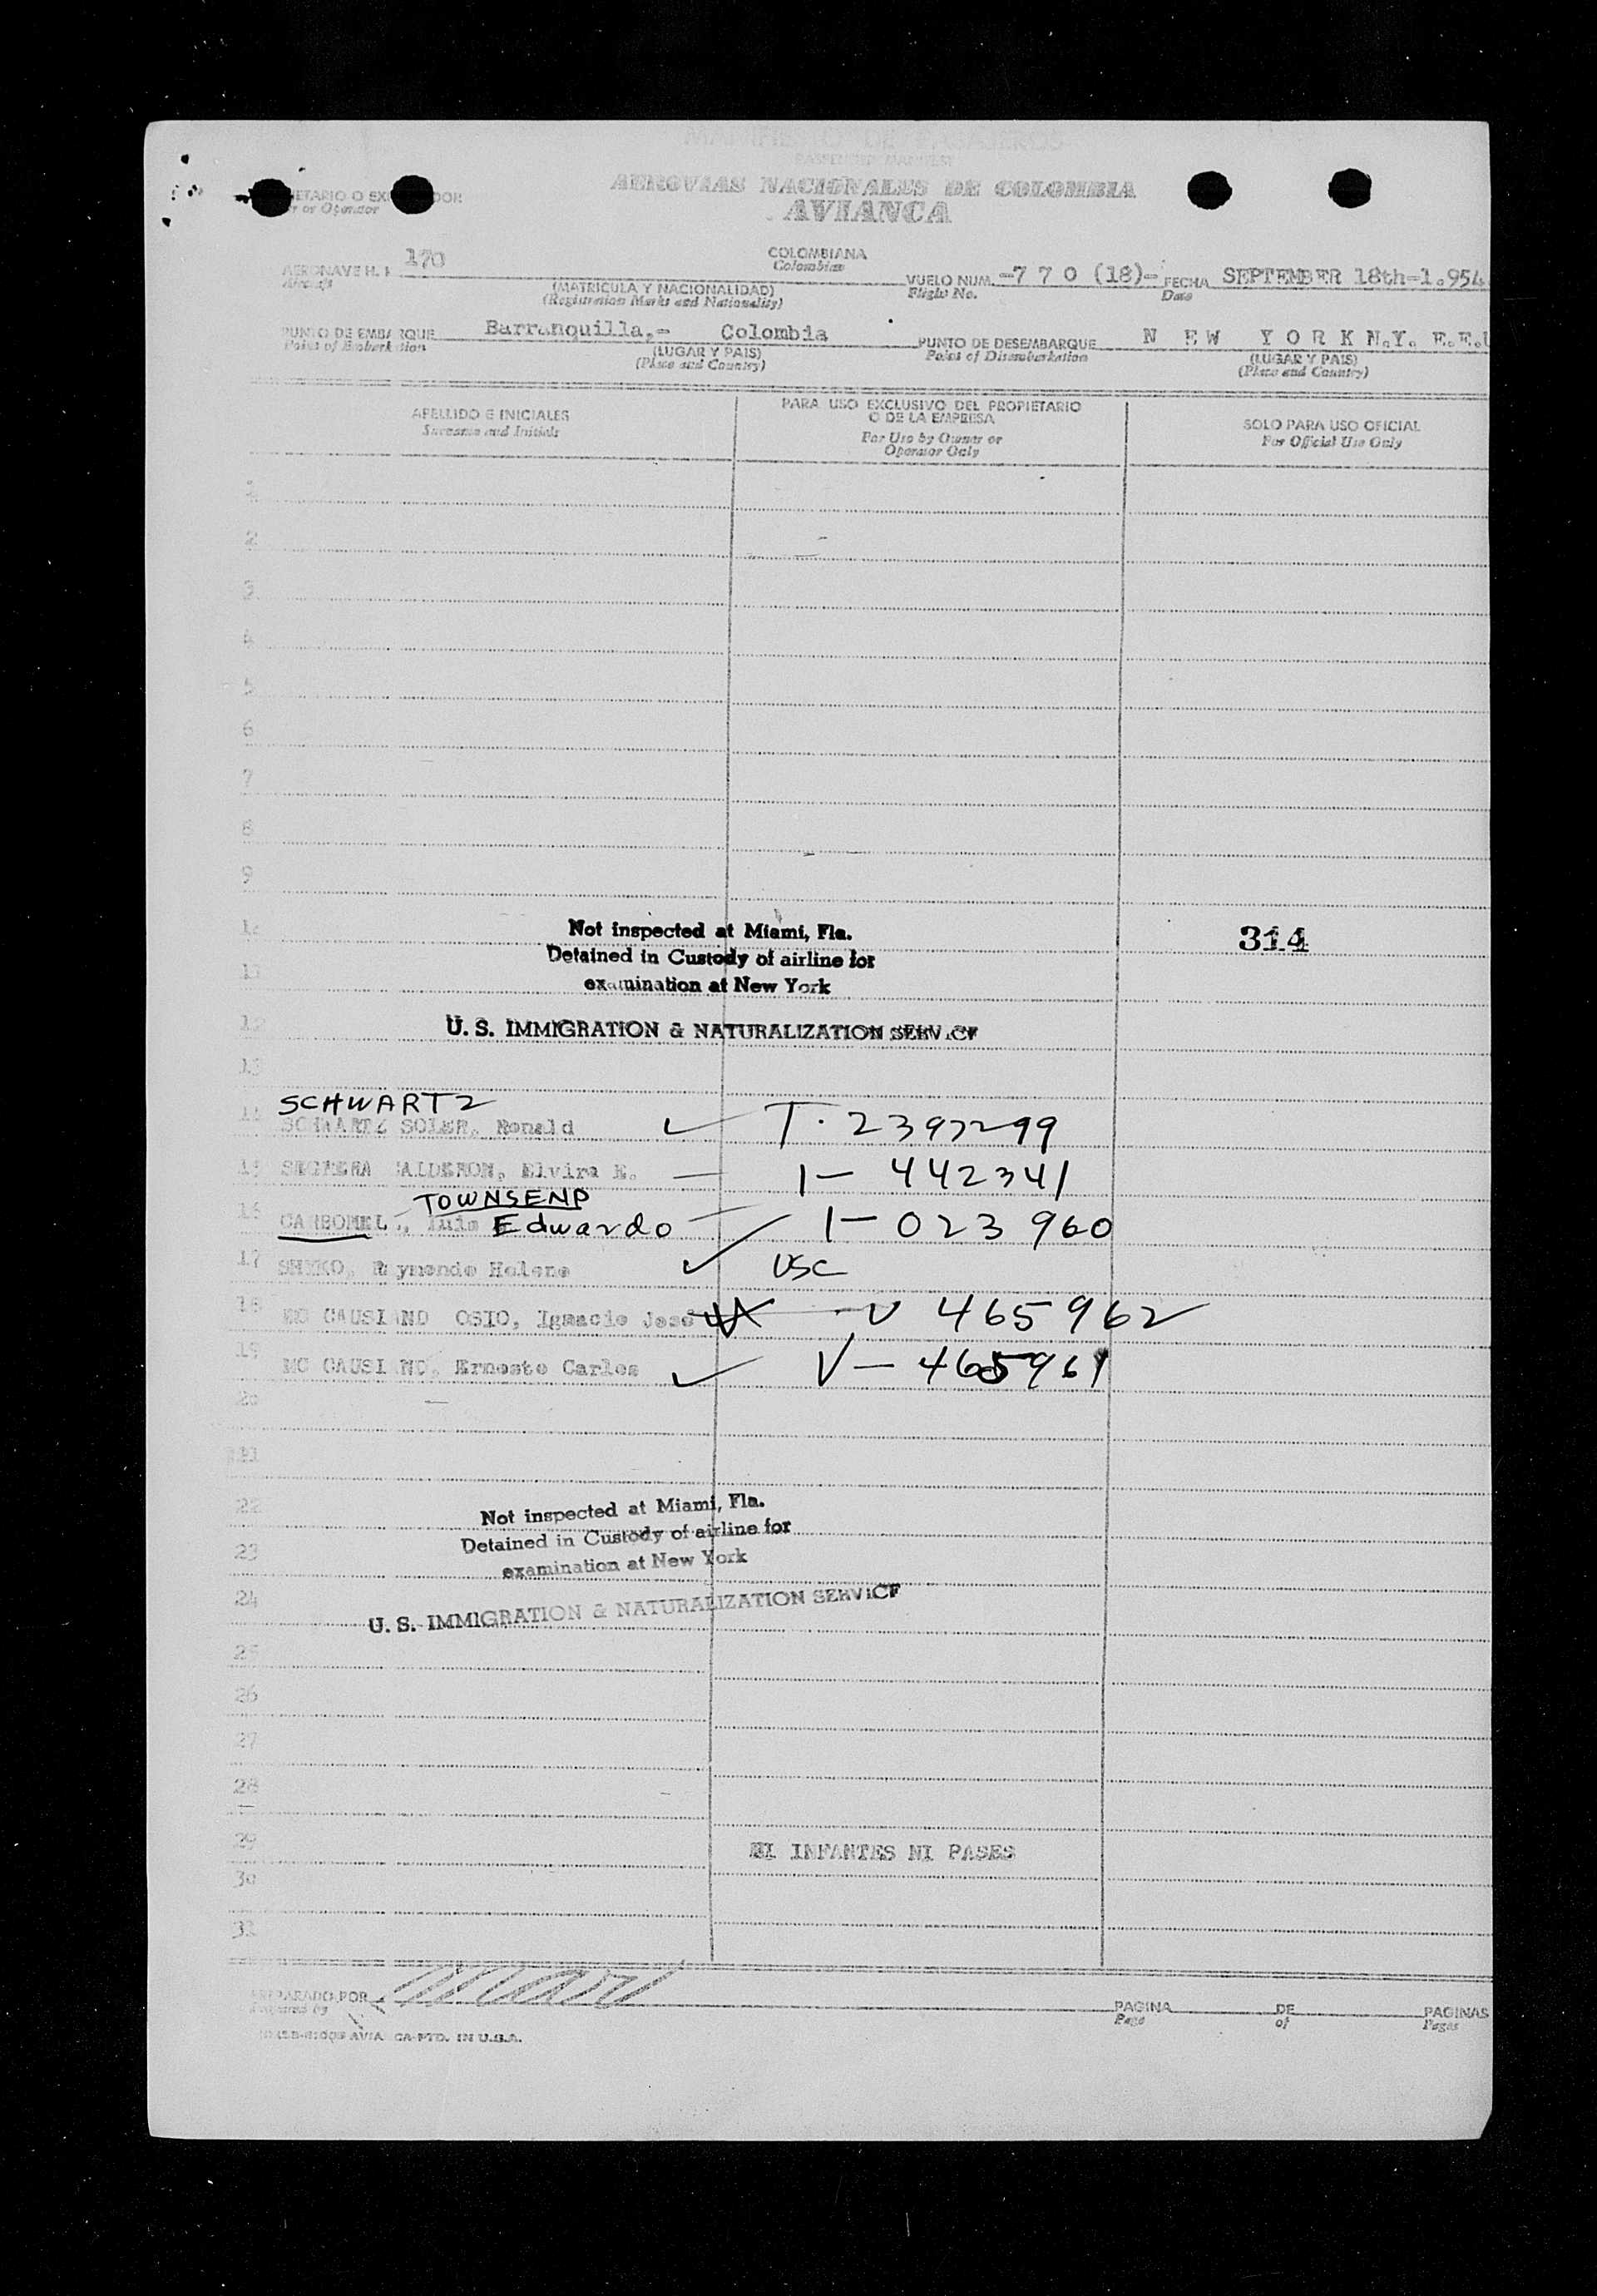 MANIFIESTO DE PASAJEROS
PASSENGER MANIFEST
AEROVIAS NACIONALES DE COLOMBIA
AVIANCA
or Operator
AERONAVE H. K. 170
Aircraft
COLOMBIANA
Colombian
(MATRICULA Y NACIONALIDAD)
(Registration Marks and Nationality)
VUELO NUM. -7 7 0 (18)-
Flight No.
FECHA SEPTEMBER 18th-1.954
Date
PUNTO DE EMBARQUE Barranquilla,- Colombia
Point of Embarkation
(LUGAR Y PAIS)
(Place and Country)
PUNTO DE DESEMBARQUE N EW Y O R K N.Y. E.E.U
Point of Disembarkation
(LUGAR Y PAIS)
(Place and Country)
APELLIDO E INICIALES
Surname and Initials
PARA USO EXCLUSIVO DEL PROPIETARIO
O DE LA EMPRESA
For Use by Owner or
Operator Only
SOLO PARA USO OFICIAL
For Official Use Only
1
2
3
4
5
6
7
8
9
Not inspected at Miami, Fla.
314
Detained in Custody of airline for
examination at New York
12
U. S. IMMIGRATION & NATURALIZATION SERVICE
13
SCHWARTZ
14 SCHWARTZ SOLER, Ronald T. 2397299
15 CALDERON, Elvira E. — 1 — 442341
TOWNSEND
16 CARBONEL, Luis Edwardo — 1 — 023960
17 Helene USC
18 MC CAUSLAND OSIO, Ignacio José V 465962
19 MC CAUSLAND, Ernesto Carlos V — 465961
20
21
22
Not inspected at Miami, Fla.
23
Detained in Custody of airline for
examination at New York
24
U. S. IMMIGRATION & NATURALIZATION SERVICE
25
26
27
28
29 NI INFANTES NI PASES
30
31
PREPARADO POR
Prepared by
PAGINA DE PAGINAS
Page of Pages
PTD. IN U.S.A.